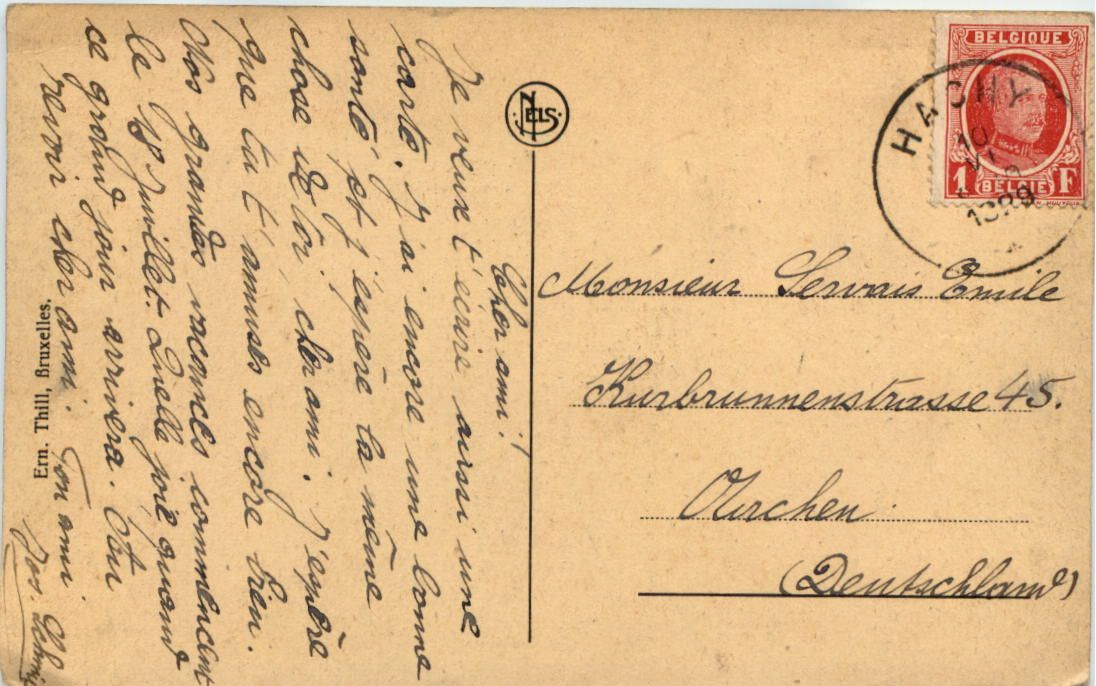 Cher ami!
Je veux t'écrire aussi une
carte. J'ai encore une bonne
santé et j'espère la même
chose de toi, cher ami. J'espère
que tu t'amuses encore bien.
Nos grandes vacances commencent
le Juillet. Quelle joie quand
ce grand jour arrivera. Au
revoir cher ami. Ton ami
Jos.
Ern. Thill, Bruxelles.
NELS
BELGIQUE
1 BELGIË F
HACHY
10
1929
Monsieur Servais Emile
Kurbrunnenstrasse 45.
Aachen
(Deutschland)